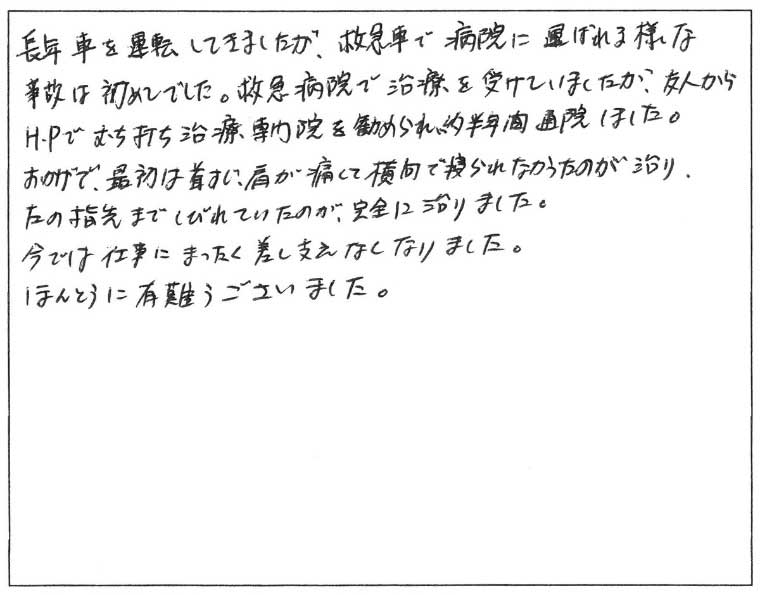 長年車を運転してきましたが、救急車で病院に運ばれる様な
事故は初めてでした。救急病院で治療を受けていましたが、友人から
H.Pでむち打ち治療専門院を勧められ、約半年間通院しました。
おかげで、最初は首すじ、肩が痛くて横向で寝られなかったのが治り、
左の指先までしびれていたのが、完全に治りました。
今では仕事にまったく差し支えなくなりました。
ほんとうに有難うございました。